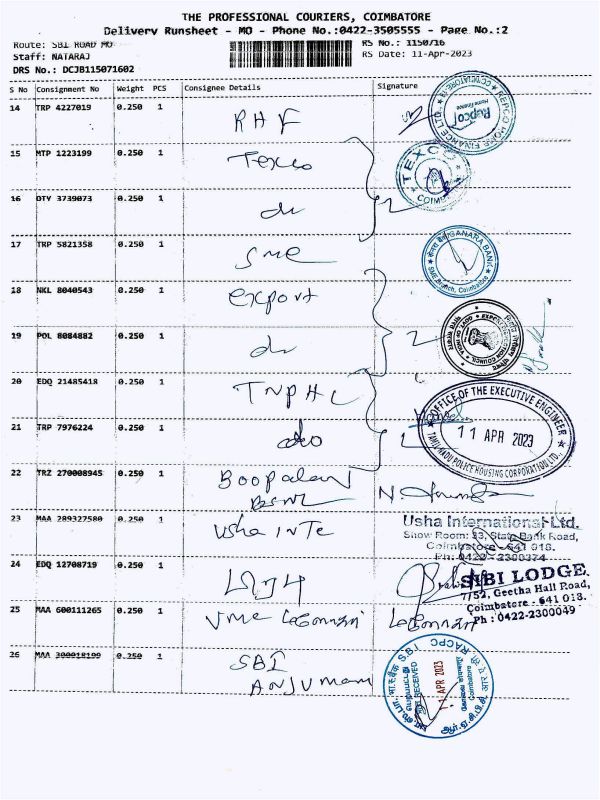 THE PROFESSIONAL COURIERS, COIMBATORE
Delivery Runsheet - MO - Phone No.:0422-3505555 - Page No.:2
Route: SBI ROAD MO RS No.: 1150/16
Staff: NATARAJ RS Date: 11-Apr-2023
DRS No.: DCJB115071602
S No Consignment No Weight PCS Consignee Details Signature
14 TRP 4227019 0.250 1 RHF
REPCO HOME FINANCE LTD. COIMBATORE
Repco Home Finance
15 MTP 1223199 0.250 1 Texco
TEXCO
16 OTY 3739073 0.250 1 do
17 TRP 5821358 0.250 1 SME
CANARA BANK
SME Branch, Coimbatore
18 NKL 8040543 0.250 1 export
19 POL 8084882 0.250 1 do
20 EDQ 21485418 0.250 1 TNPHC
OFFICE OF THE EXECUTIVE ENGINEER
11 APR 2023
TAMIL NADU POLICE HOUSING CORPORATION LTD.
21 TRP 7976224 0.250 1 do
22 TRZ 270008945 0.250 1 Boopalan
BSNL
23 MAA 289327580 0.250 1 Usha INTE
Usha International Ltd.
Show Room: 33, State Bank Road,
Coimbatore - 641 018.
Ph: 0422 - 2300374
24 EDQ 12708719 0.250 1
SIBI LODGE
7/52, Geetha Hall Road,
Coimbatore - 641 018.
Ph : 0422-2300049
25 MAA 600111265 0.250 1
26 MAA 300018199 0.250 1 SBI
ANJUMAM
S.B.I. RACPC
RECEIVED
11 APR 2023
Coimbatore